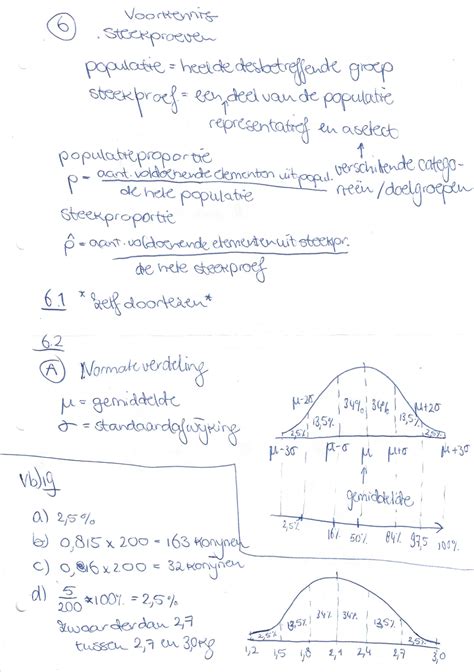 6 Voorkennis
steekproeven
populatie = heel de desbetreffende groep
steekproef = een deel van de populatie
representatief en aselect
↑
verschillende catego-
rieën / doelgroepen
populatieproportie
p = aant. voldoenende elementen uit popul.
de hele populatie
steekproportie
p̂ = aant. voldoenende elementen uit steekpr.
de hele steekproef
6.1 *Zelf doorlezen*
6.2
A Normale verdeling
μ = gemiddelde
σ = standaardafwijking
μ-2σ μ+2σ
2,5% 13,5% 34% 34% 13,5% 2,5%
μ-3σ μ-σ μ μ+σ μ+3σ
gemiddelde
2,5% 16% 50% 84% 97,5 100%
vb)19
a) 2,5%
b) 0,815 x 200 = 163 konijnen
c) 0,16 x 200 = 32 konijnen
d) 5/200 * 100% = 2,5%
zwaarder dan 2,7
tussen 2,7 en 3,0 kg
2,5% 13,5% 34% 34% 13,5% 2,5%
1,2 1,5 1,8 2,1 2,4 2,7 3,0